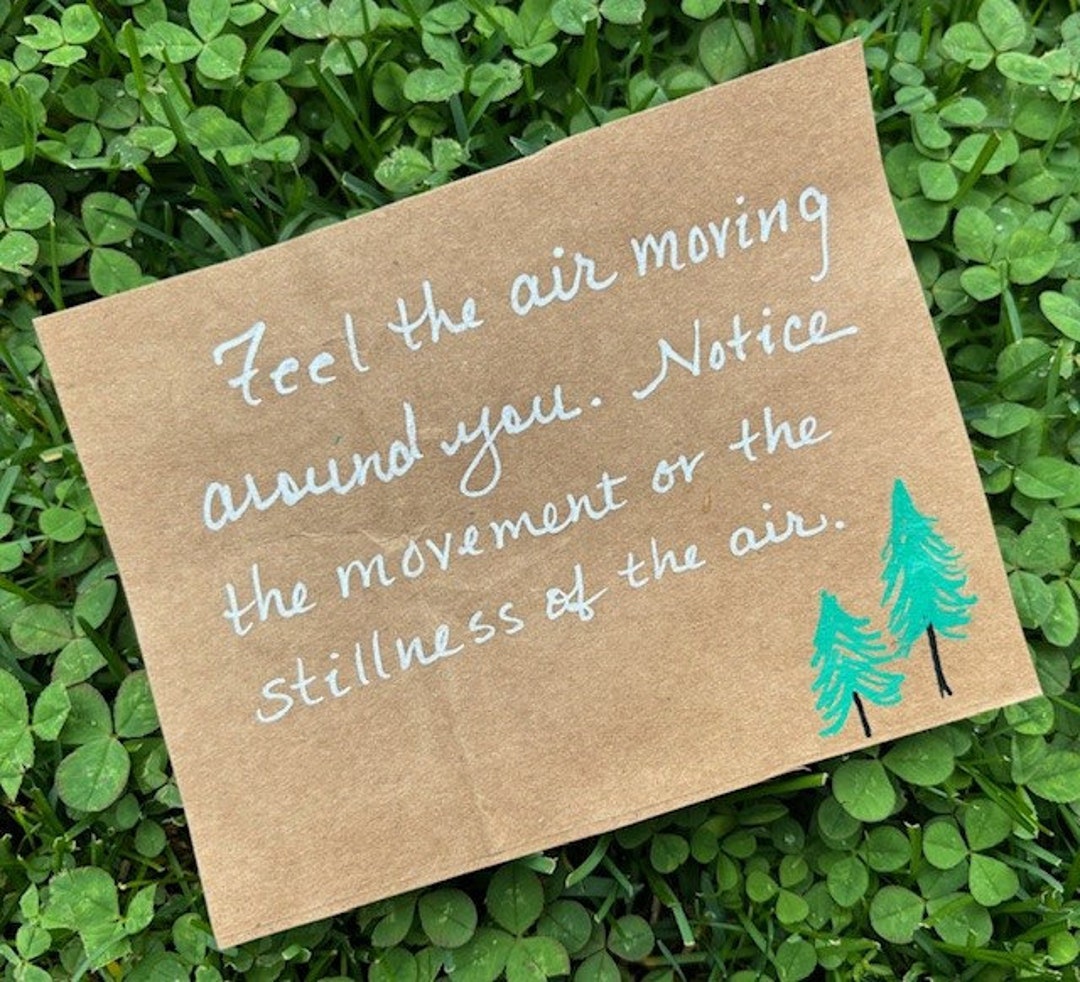 Feel the air moving
around you. Notice
the movement or the
stillness of the air.